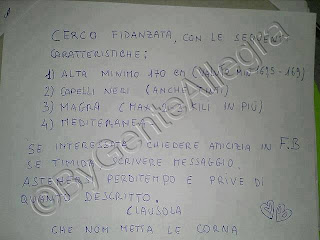 CERCO FIDANZATA, CON LE SEGUENTI
CARATTERISTICHE:
1) ALTA MINIMO 170 CM (VALUTO MIN 169,5 - 169)
2) CAPELLI NERI (ANCHE TINTI)
3) MAGRA (MAX KILI IN PIÙ)
4) MEDITERRANEA
SE INTERESSATA CHIEDERE AMICIZIA IN F.B
SE TIMIDA SCRIVERE MESSAGGIO.
ASTENERSI PERDITEMPO E PRIVE DI
QUANTO DESCRITTO.
CLAUSOLA
CHE NON METTA LE CORNA
©ByGenteAllegra